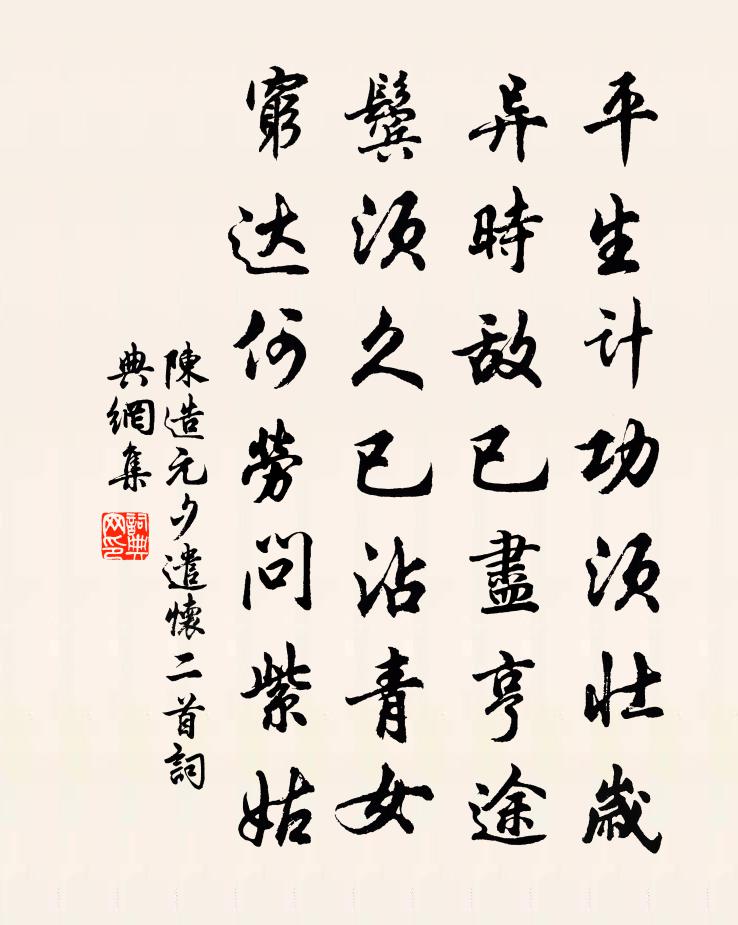 平生计功须壮歲
异時敌已盡亨途
鬓须久已沾青女
窮达何勞問紫姑
陳造元夕遣懷二首詞
典網集
詞典
网印